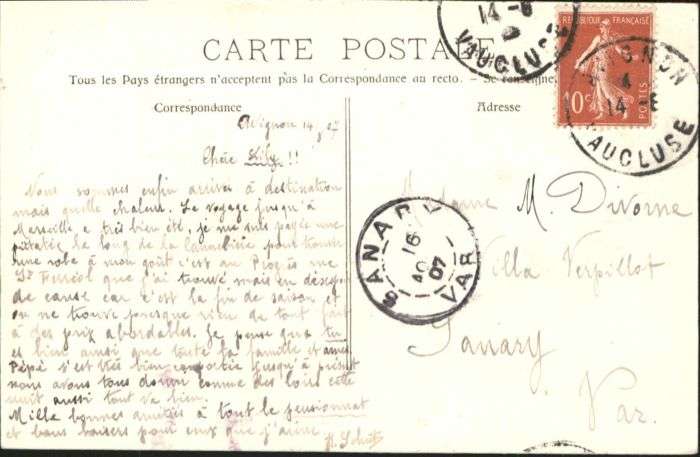 CARTE POSTALE
Tous les Pays étrangers n'acceptent pas la Correspondance au recto. — Se renseigner
Correspondance
Adresse
Avignon 14 8 07
Chère Lily !!
Nous sommes enfin arrivés à destination
mais quelle chaleur. Le voyage jusqu'à
Marseille a très bien été, je me suis payée une
le long de la Cannebière pour trouver
une robe à mon goût c'est au Progrès rue
St Ferréol que j'ai trouvé mais en désespoir
de cause car c'est la fin de saison et
on ne trouve presque rien de tout fait
à des prix abordables. Je pense que tu
es bien ainsi que toute la famille et amies
Pépé s'est très bien comportée jusqu'à présent
nous avons tous dormi comme des loirs cette
nuit aussi tout va bien.
Mille bonnes amitiés à tout le pensionnat
et bons baisers pour ceux que j'aime.
Madame M. Divorne
Villa Verpillot
Sanary
Var.
REPUBLIQUE FRANÇAISE
10c
POSTES
14-8
VAUCLUSE
AVIGNON
4
14
VAUCLUSE
SANARY
16
07
VAR